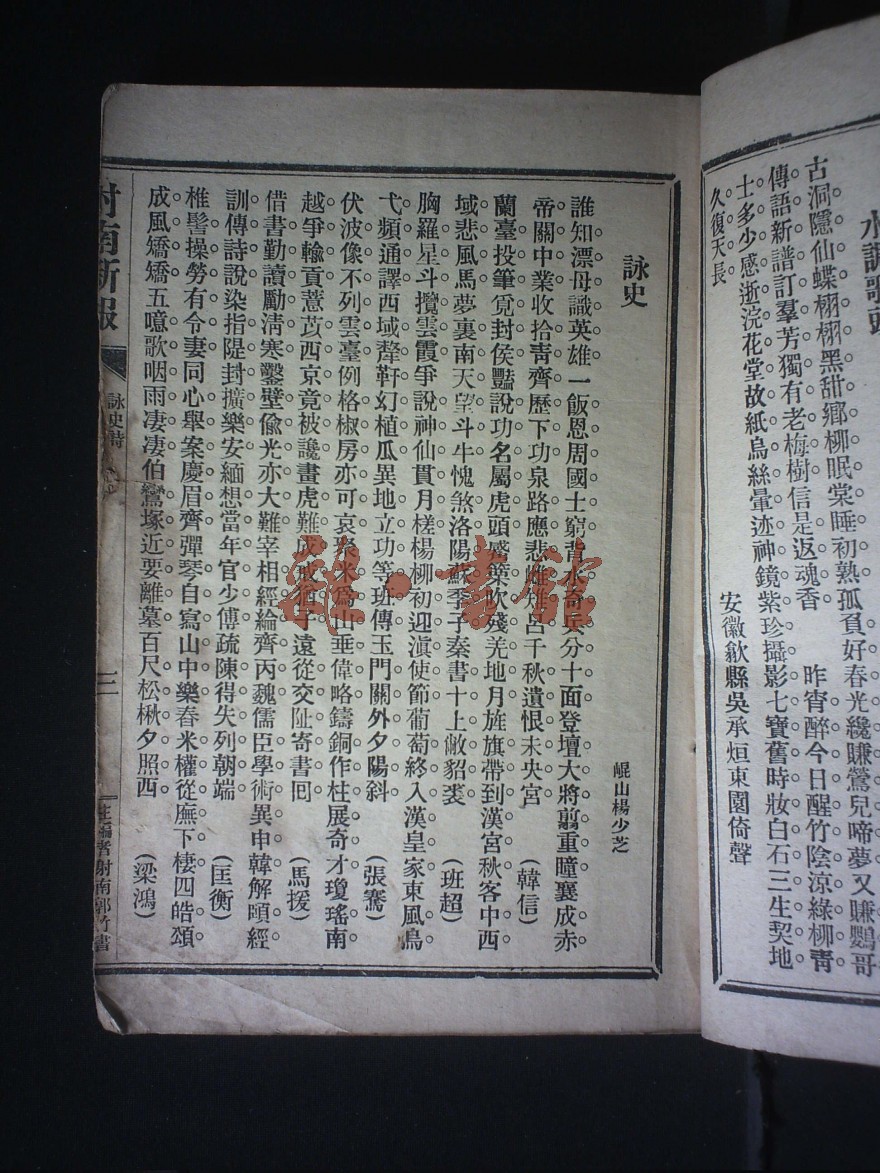 水調歌頭
古洞隱仙蝶栩栩黑甜鄉柳眠棠睡初熟孤負好春光纔賺鶯兒啼夢又賺鸚哥
傳語新譜訂羣芳獨有老梅樹信足返魂香 昨宵醉今日醒竹陰涼綠柳靑
士多少感逝浣花堂故紙烏絲暈迹神鏡紫珍攝影七寶舊時妝白石三生契地
久復天長
安徽歙縣吳承烜東園倚聲
詠史
崐山楊少芝
誰知漂母識英雄一飯恩周國士窮背水奇兵分十面登壇大將翦重瞳襄成赤
帝關中業收拾靑齊歷下功泉路應悲雌雉呂千秋遺恨未央宮 (韓信)
蘭臺投筆覓封侯豔說功名屬虎頭觱篥吹殘羌地月旌旗帶到漢宮秋客中西
域悲風馬夢裏南天望斗牛愧煞洛陽蘇季子秦書十上敝貂裘 (班超)
胸羅星斗攬雲霞爭說神仙貫月槎楊柳初迎滇使節葡萄終入漢皇家東風鳥
弋頻通譯西域犛靬幻植瓜異地立功等班傳玉門關外夕陽斜 (張騫)
伏波像不列雲臺例格椒房亦可哀聚米爲山垂偉略鑄銅作柱展奇才瓊瑤南
越爭輸貢薏苡西京竟被讒畫虎難成戒猶子遠從交趾寄書囘 (馬援)
借書勤讀勵淸寒鑿壁偸光亦大難宰相經綸齊丙魏儒臣學術異申韓解頤經
訓傳詩說染指隄封擴樂安緬想當年官少傅疏陳得失列朝端 (匡衡)
椎髻操勞有令妻同心舉案慶眉齊彈琴自寫山中樂舂米權從廡下棲四皓頌
成風矯矯五噫歌咽雨凄凄伯鸞塚近要離墓百尺松楸夕照西 (梁鴻)
射南新報
詠史詩
三
主編者射南郭竹書